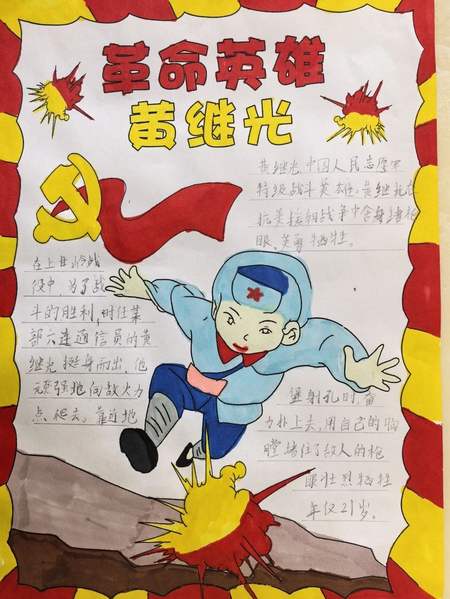 革命英雄
黄继光
黄继光,中国人民志愿军
特级战斗英雄。黄继光在
抗美援朝战争中舍身堵枪
眼、英勇牺牲。
在上甘岭战
役中,为了战
斗的胜利,时任某
部六连通信员的黄
继光挺身而出,他
顽强地向敌火力
点爬去,靠近地
堡射孔时,奋
力扑上去,用自己的胸
膛堵住了敌人的枪
眼壮烈牺牲
年仅21岁。